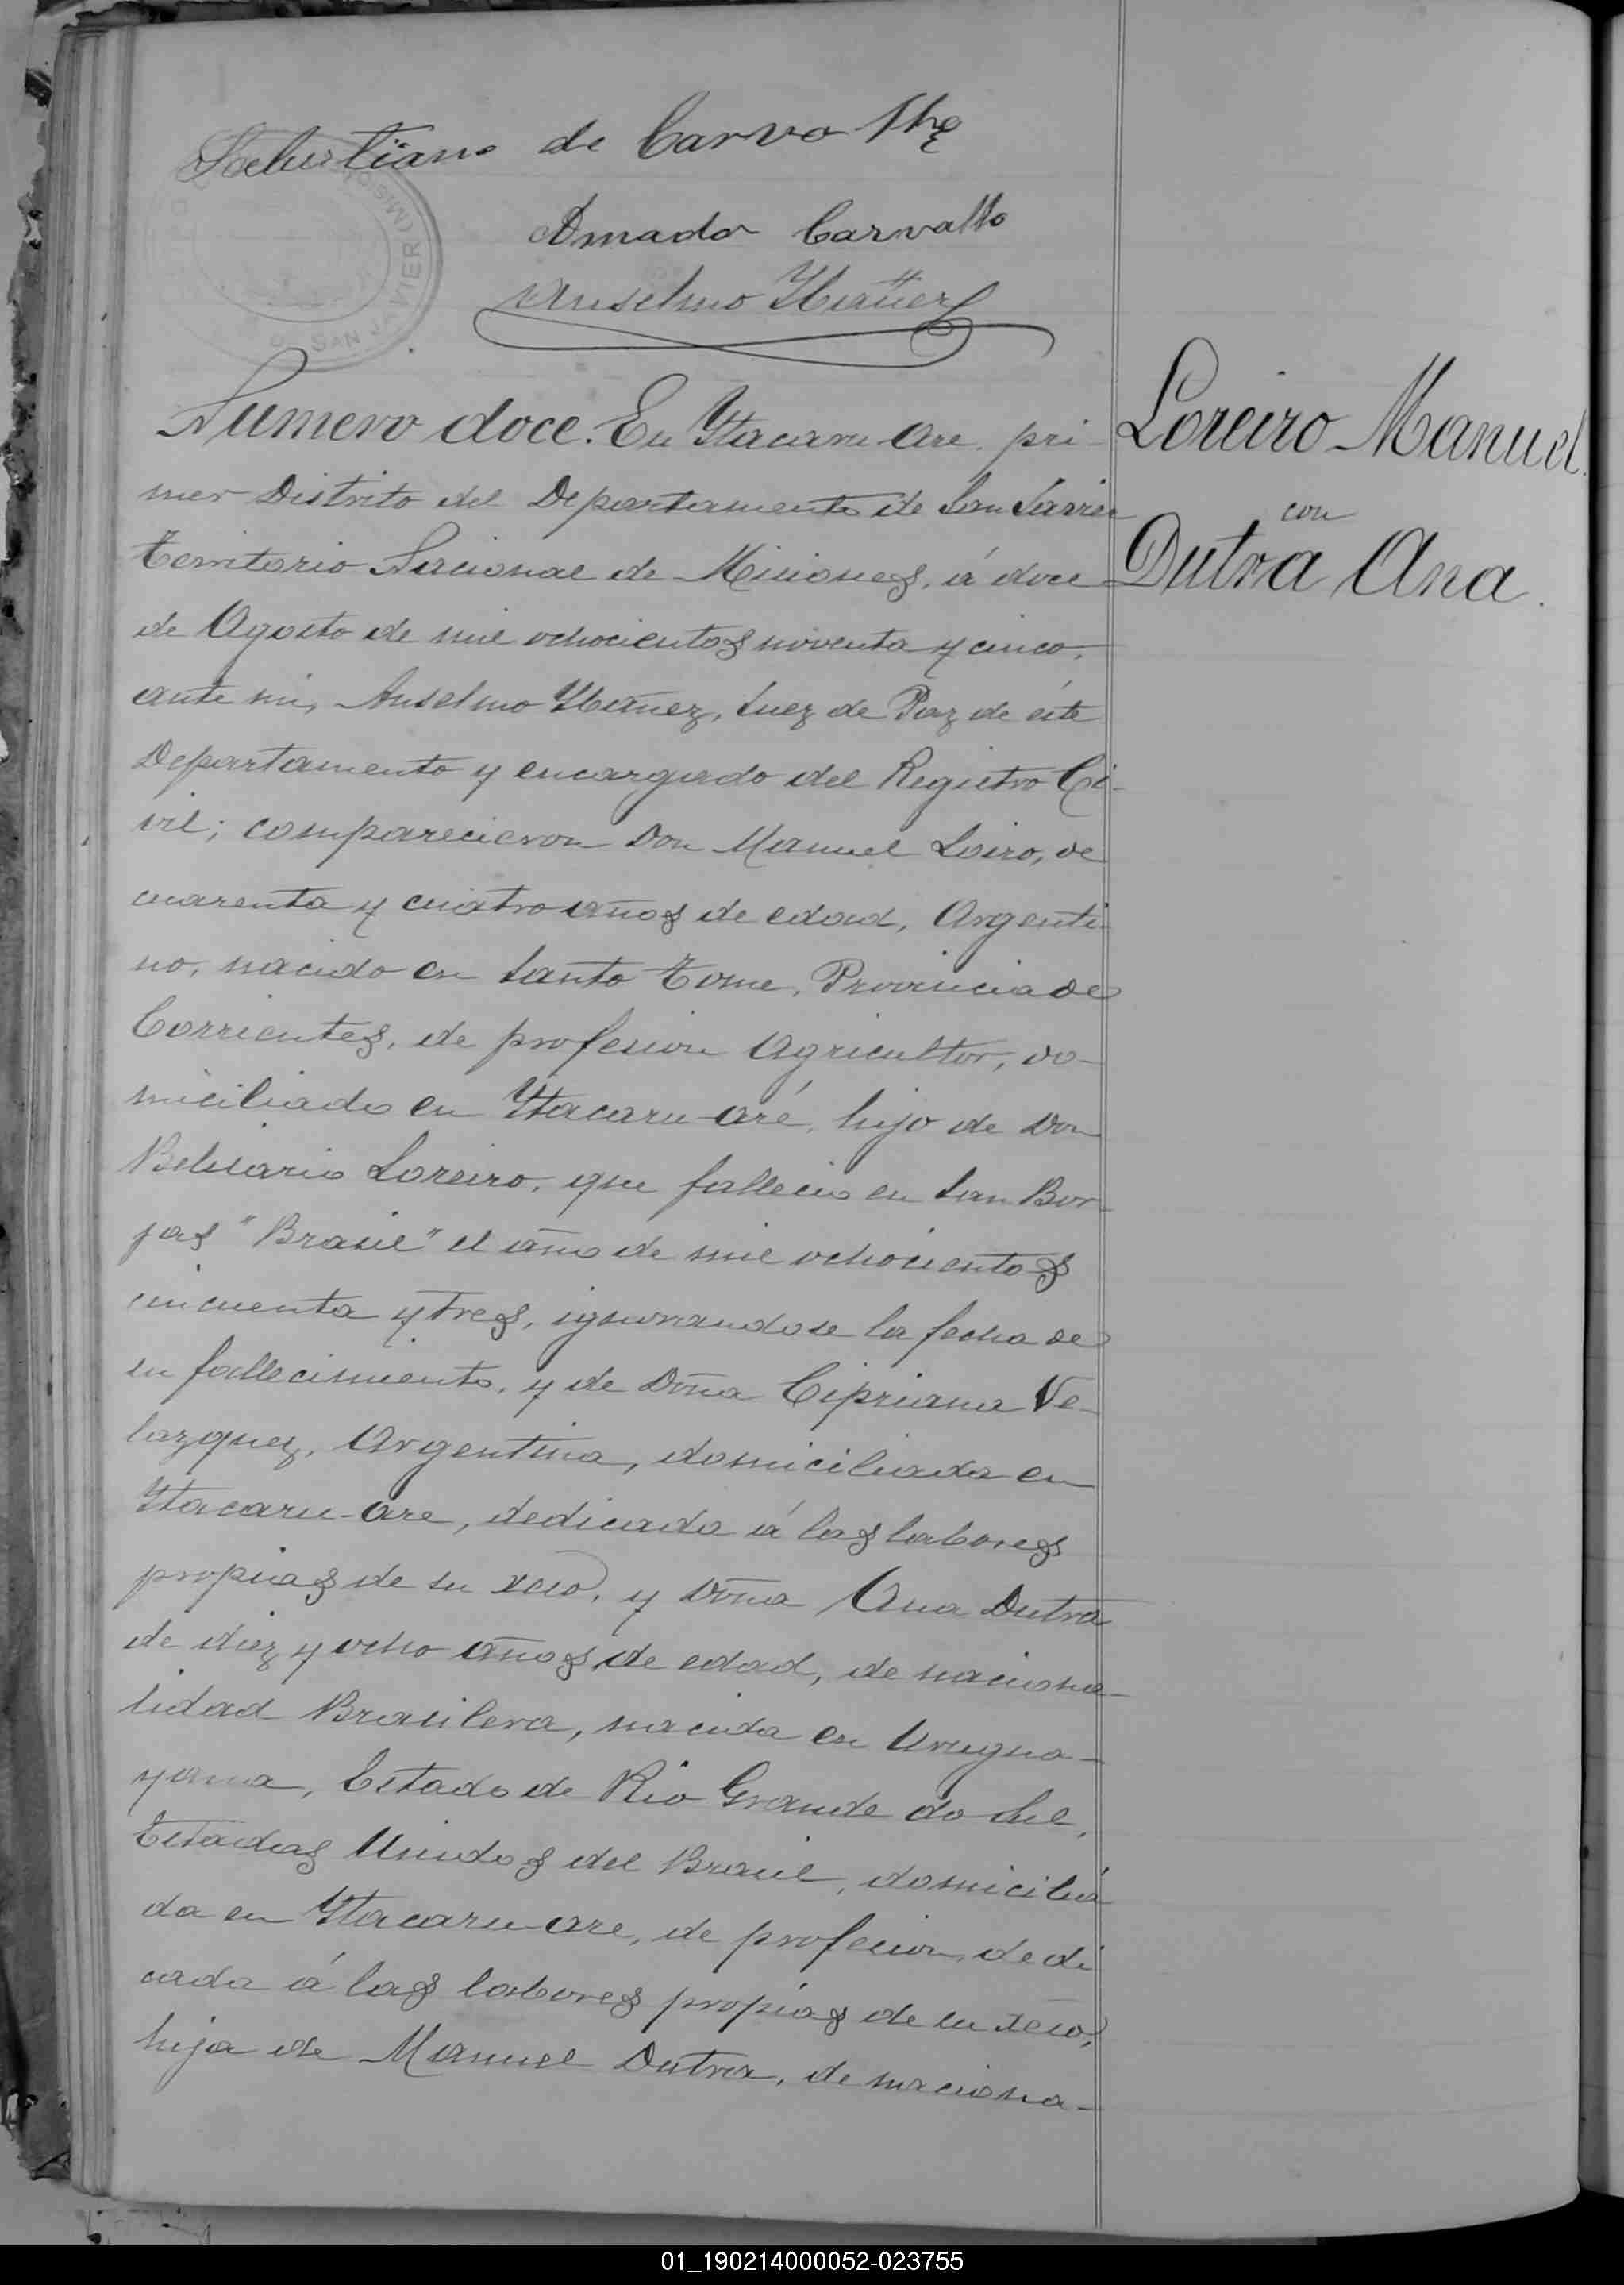 de Carvo lho
Amador Carvallo
Anselmo Ybañez
SAN JAVIER (Mision
Numero doce. En Ytacaru-are. pri-
mer Distrito del Departamento de San Javier
Territorio Nacional de Misiones, á doce
de Agosto de mil ochocientos noventa y cinco,
ante mi, Anselmo Ybañez, Juez de Paz de éste
Departamento y encargado del Registro Ci-
vil; comparecieron Don Manuel Loiro, de
cuarenta y cuatro años de edad, Argenti-
no, nacido en Santo Tome, Provincia de
Corrientes, de profesion Agricultor, do-
miciliado en Ytacaru-aré, hijo de Don
Belisario Loreiro, que fallecio en San Bor-
jas "Brasil" el año de mil ochocientos
cincuenta y tres, ignorandose la fecha de
su fallecimiento, y de Doña Cipriana Ve-
lazquez, Argentina, domiciliada en
Ytacaru-are, dedicada á las labores
propias de su xeso, y Doña Ana Dutra
de diez y ocho años de edad, de naciona-
lidad Brasilera, nacida en Urugua-
yana, Estado de Rio Grande do Sul,
Estados Unidos del Brasil, domicilia
da en Ytacaru-are, de profesion, dedi
cada á las labores propias de su xeso,
hija de Manuel Dutra, de naciona-
Loreiro Manuel.
con
Dutra Ana.
01_190214000052-023755